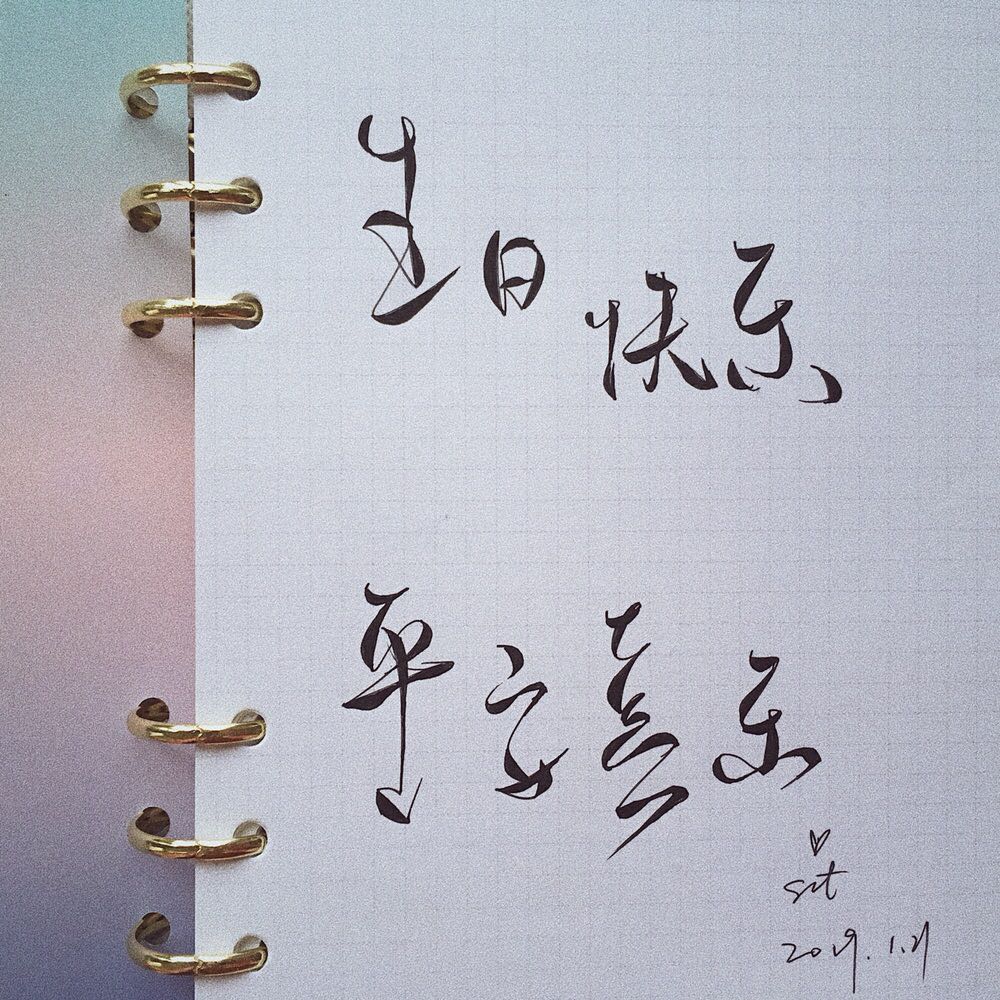 生日快乐
平安喜乐
2019.1.21